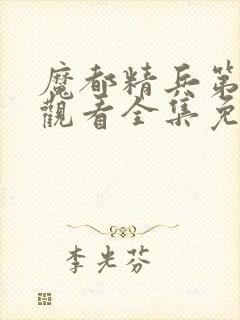 魔都精兵第
觀看全集免
李光芬